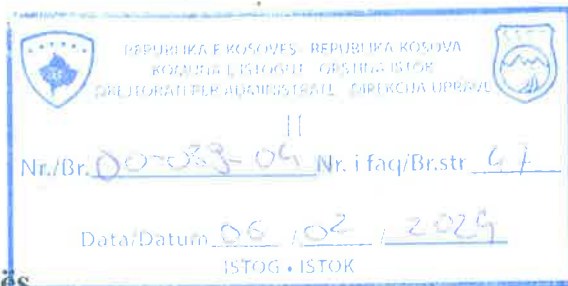 REPUBLIKA E KOSOVËS - REPUBLIKA KOSOVA
KOMUNA E ISTOGUT - OPŠTINA ISTOK
DREJTORATI PËR ADMINISTRATË - DIREKCIJA UPRAVE
II
Nr./Br. 00-033-04 Nr. i faq/Br.str
Data/Datum 06 / 02 / 2024
ISTOG • ISTOK
ës